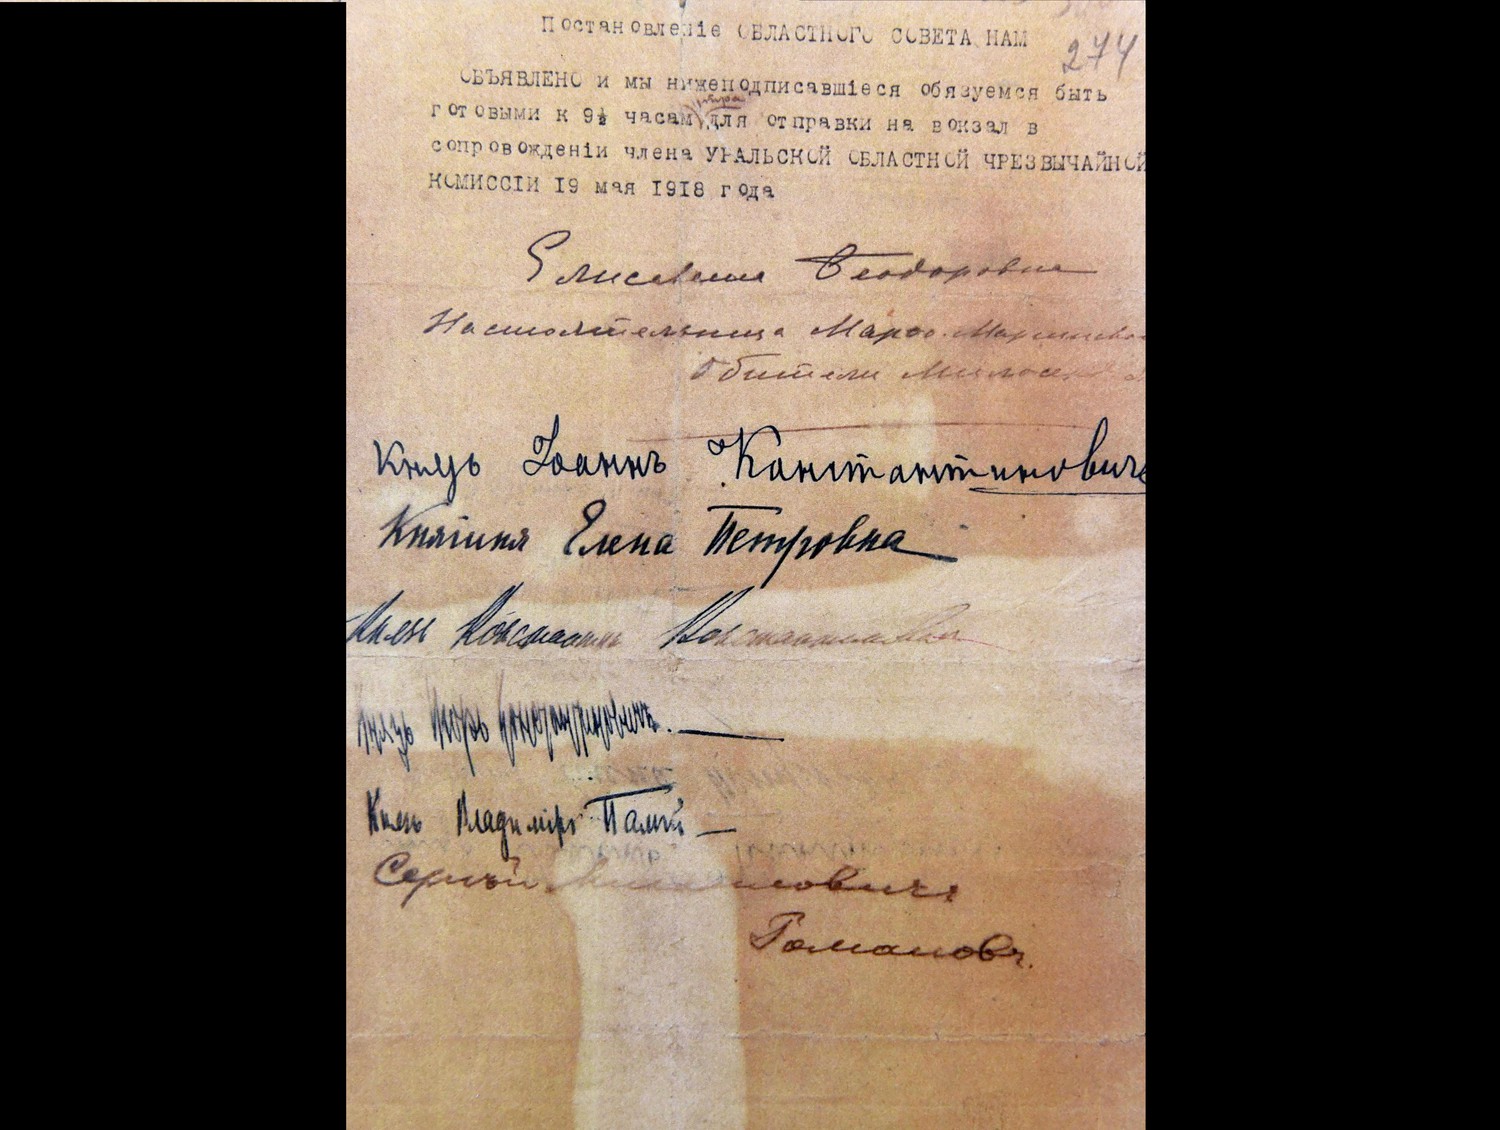 Постановленіе ОБЛАСТНОГО СОВЕТА НАМ
274
ОБЪЯВЛЕНО и мы нижеподписавшіеся обязуемся быть
утра
готовыми к 9½ часам для отправки на вокзал в
сопровожденіи члена УРАЛЬСКОЙ ОБЛАСТНОЙ ЧРЕЗВЫЧАЙНОЙ
КОМИССІИ 19 мая 1918 года
Елисавета Феодоровна
Настоятельница Марфо-Маріинской
Обители Милосердія
Князь Іоаннъ Константиновичъ
Княгиня Елена Петровна
Князь Константинъ Константиновичъ
Князь Игорь Константиновичъ.
Князь Владиміръ Палѣй
Сергѣй Михайловичъ
Романовъ.